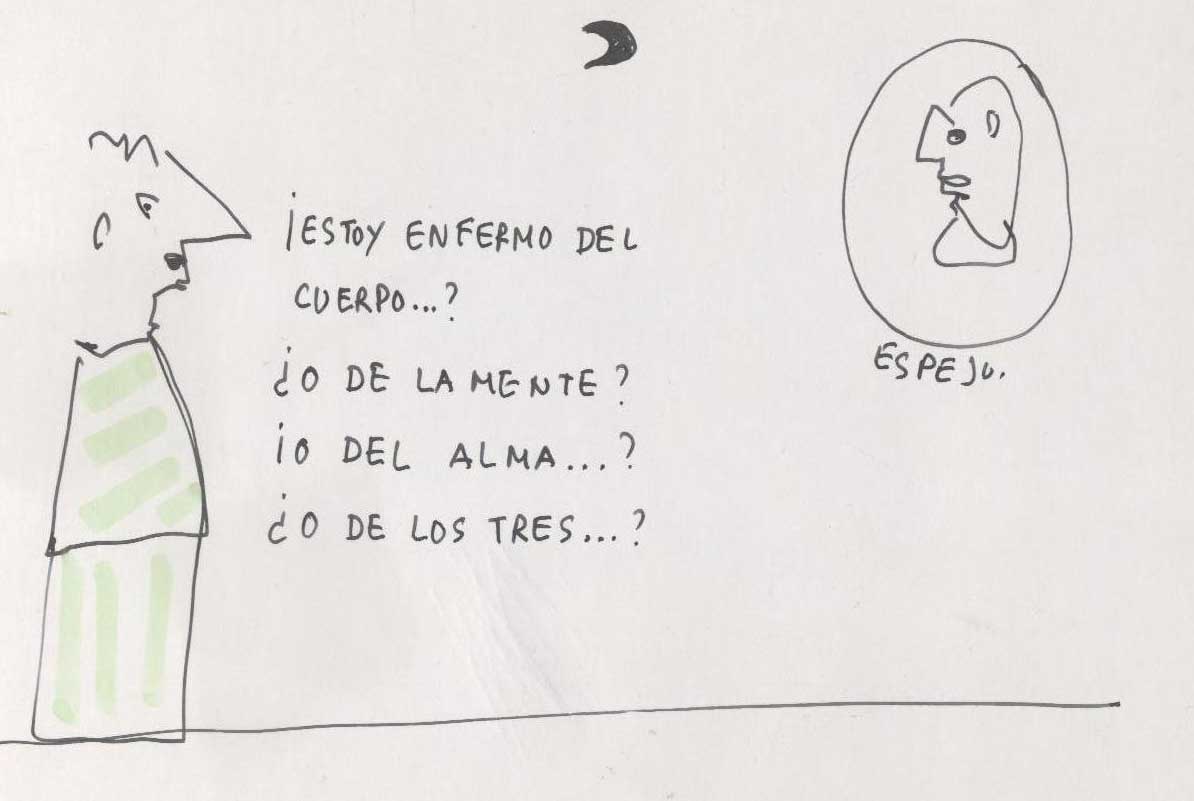 ¡ESTOY ENFERMO DEL
CUERPO...?
¿O DE LA MENTE?
¡O DEL ALMA...?
¿O DE LOS TRES...?
ESPEJO.